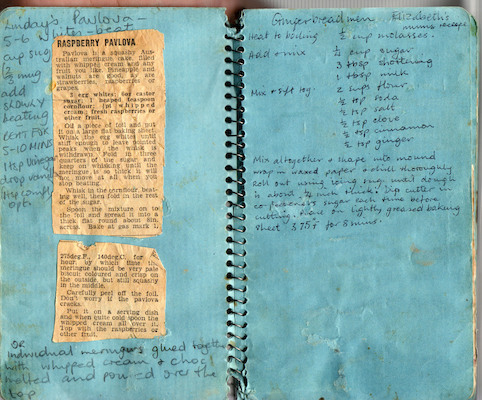 Linday's Pavlova -
5-6 whites - beat
cup sug
½ mug
add
slowly
beating
cent for
5-10 mins
1 tsp vinegar
drop vanilla
1 tsp cornfl
opt.
RASPBERRY PAVLOVA
Pavlova is a squashy Aus-
tralian meringue cake, filled
with whipped cream and any
fruit you like. Pineapple and
walnuts are good, so are
strawberries, raspberries or
grapes.
3 egg whites; 6oz caster
sugar; 1 heaped teaspoon
cornflour; ½pt whipped
cream; fresh raspberries or
other fruit.
Oil a piece of foil and put
it on a large flat baking sheet.
Whisk the egg whites until
stiff enough to leave pointed
peaks when the whisk is
withdrawn. Fold in three
quarters of the sugar and
keep on whisking until the
meringue is so thick it will
not move at all when you
stop beating.
Whisk in the cornflour, beat-
ing well, then fold in the rest
of the sugar.
Spoon the mixture on to
the foil and spread it into a
thick flat round about 8in.
across. Bake at gas mark 1,
275deg.F., 140deg.C. for
hour, by which time the
meringue should be very pale
biscuit coloured and crisp on
the outside, but still squashy
in the middle.
Carefully peel off the foil.
Don't worry if the pavlova
cracks.
Put it on a serving dish
and when quite cold spoon the
whipped cream all over it.
Top with the raspberries or
other fruit.
OR
Individual meringues glued together
with whipped cream & choc
melted and poured over the
top
Gingerbreadmen Elizabeth's
mums receipe
Heat to boiling ½ cup molasses.
Add & mix ¼ cup sugar
3 tbsp shortening
1 tbsp milk
Mix & sift tog: 2 cups flour
½ tsp soda
½ tsp salt
½ tsp clove
½ tsp cinnamon
½ tsp ginger
Mix altogether & shape into mound
wrap in waxed paper & chill thoroughly
Roll out using icing sug. until dough
is about ¼ inch thick. Dip cutter in
confect's sugar each time before
cutting. Place on lightly greased baking
sheet & 375F for 8 mins.